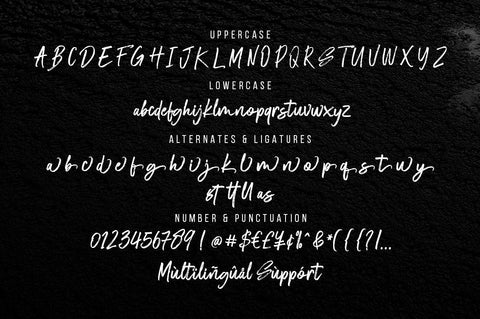 UPPERCASE
ABCDEFGHIJKLMNOPQRSTUVWXYZ
LOWERCASE
abcdefghijklmnopqrstuvwxyz
ALTERNATES & LIGATURES
a b c d e f g h i j k l m n o p q s t u y
NUMBER & PUNCTUATION
0123456789!@#$€£¥¢%^&*({{?/...
Múltilingûâl Súppórt